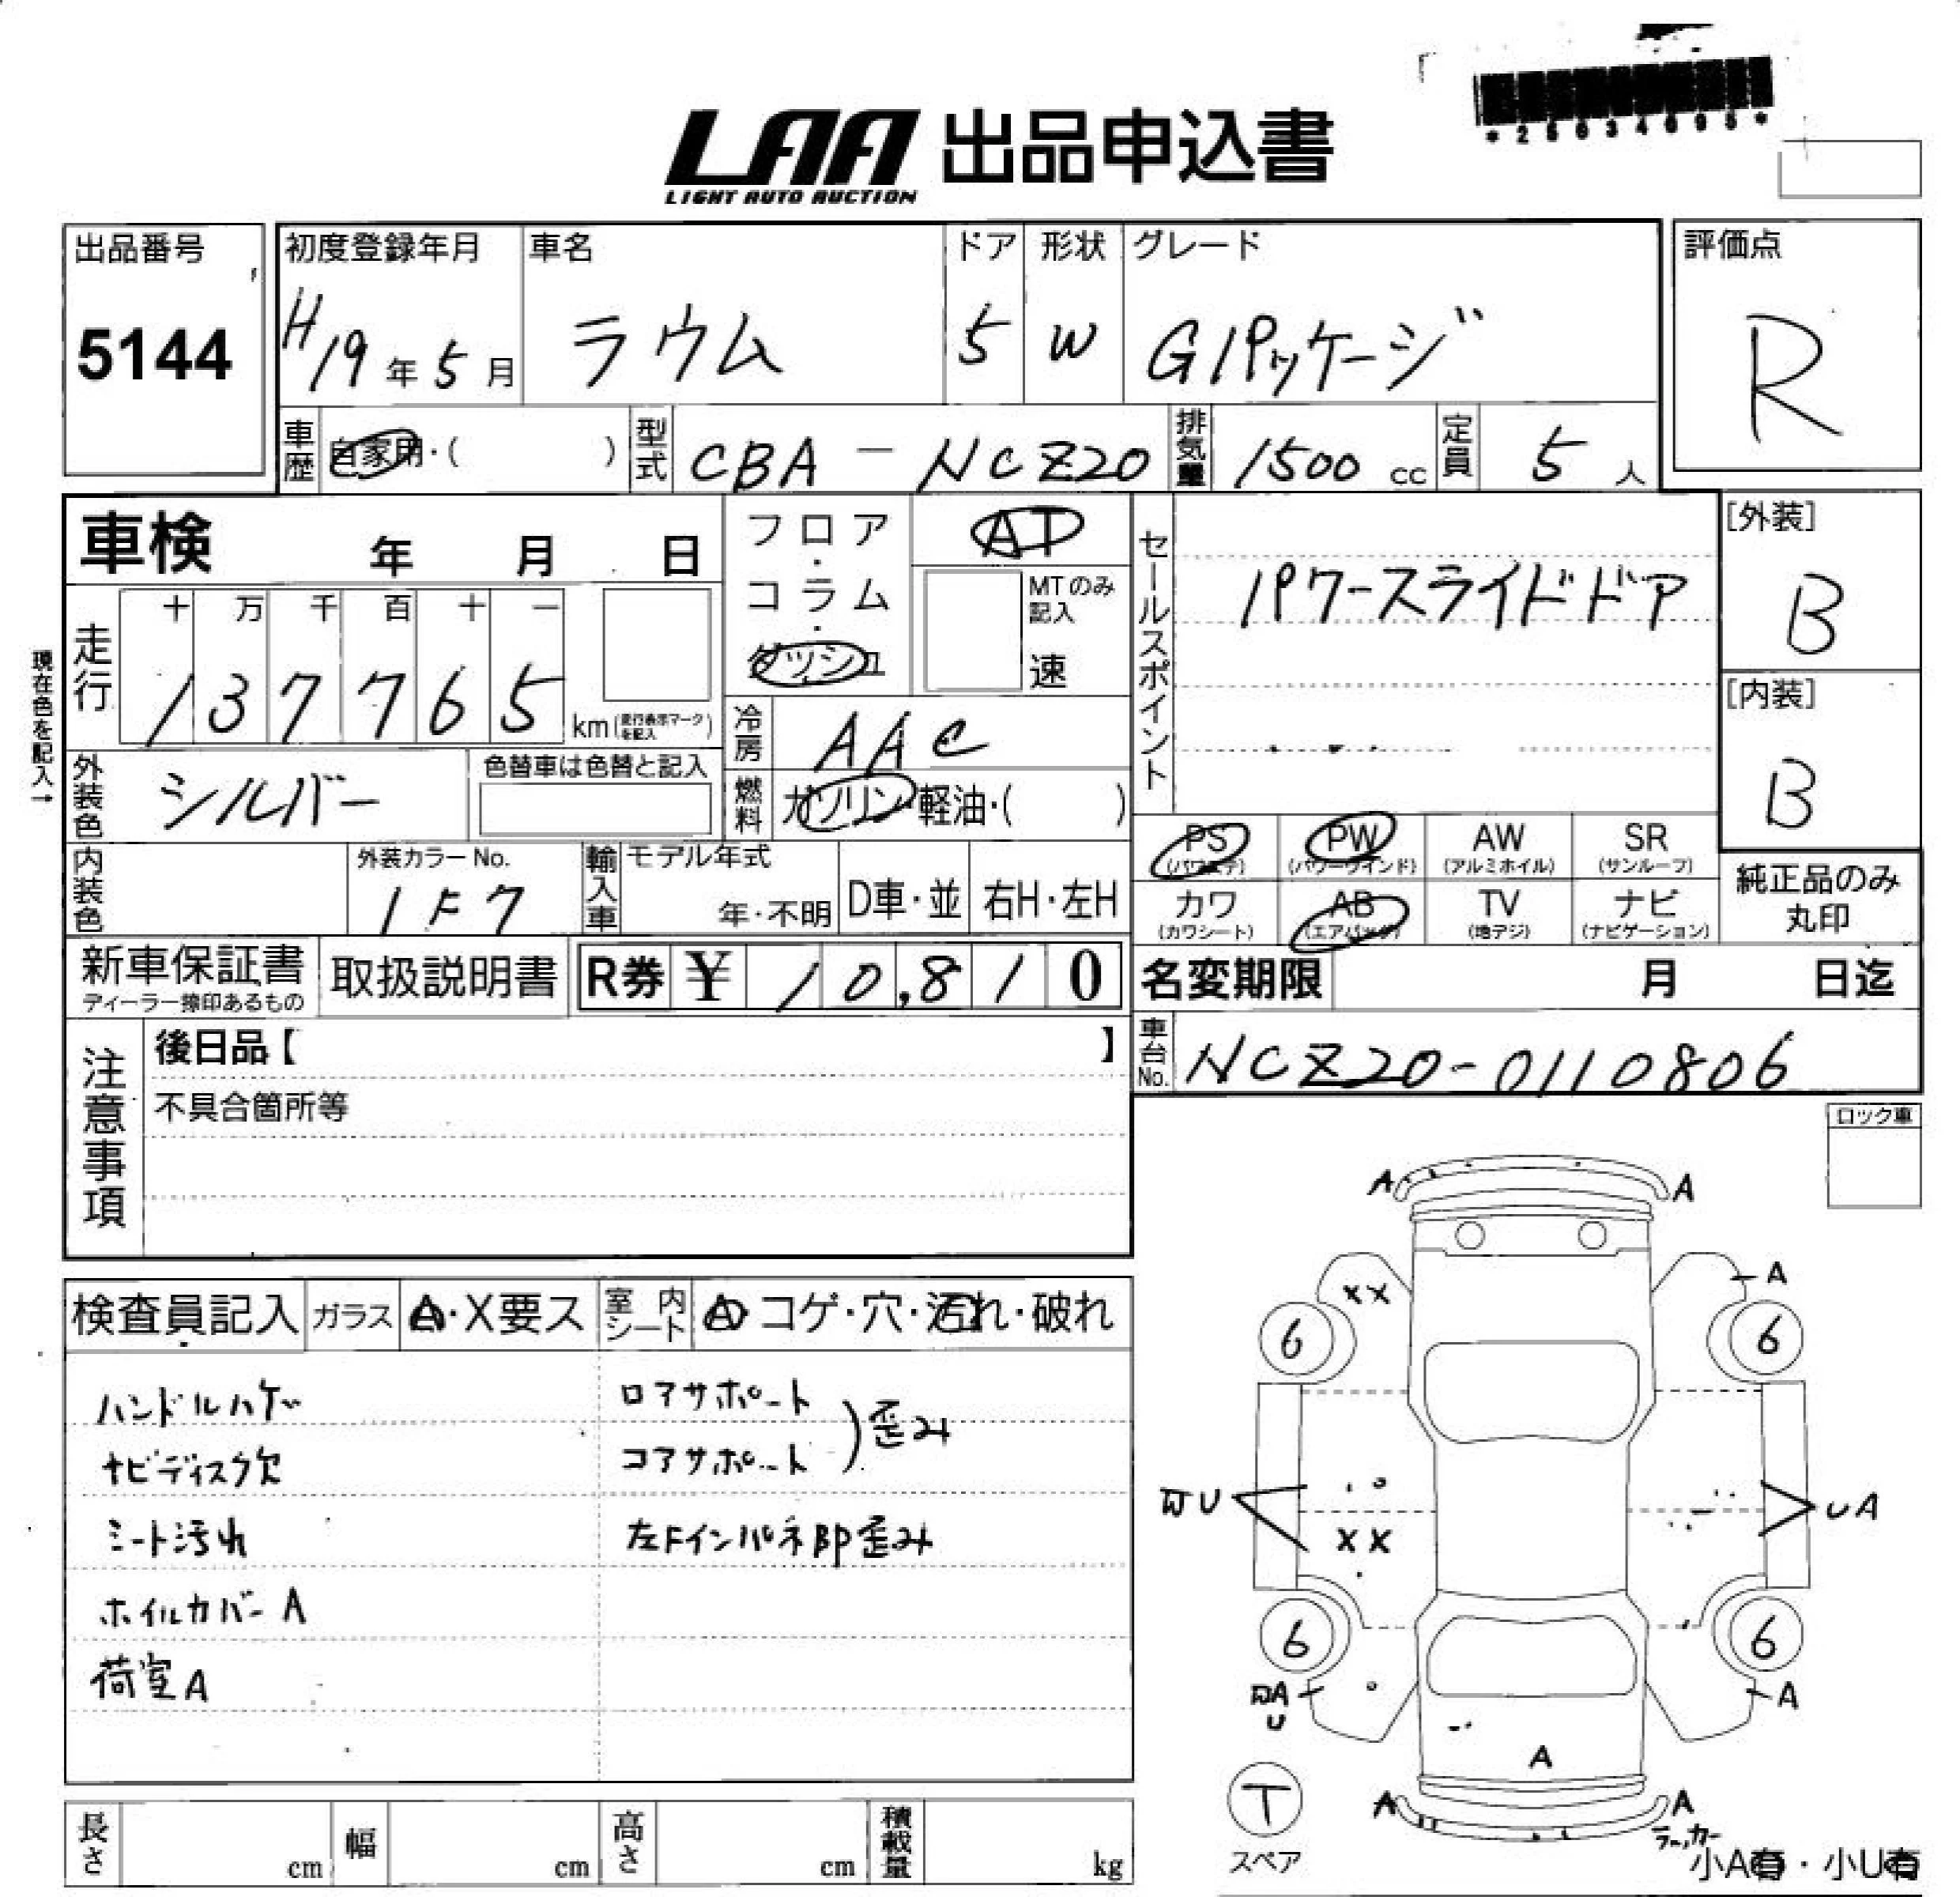 *25034695*
LAA 出品申込書
LIGHT AUTO AUCTION
出品番号
5144
初度登録年月
H19年5月
車名
ラウム
ドア
5
形状
W
グレード
Gパッケージ
評価点
R
車歴
自家用・( )
型式
CBA-NCZ20
排気量
1500 cc
定員
5 人
車検 年 月 日
フロア・コラム・ダッシュ
AT
MTのみ記入
速
セールスポイント
パワースライドドア
[外装]
B
[内装]
B
現在色を記入→
走行
十 万 千 百 十 一
1 3 7 7 6 5
km(走行表示マークを記入)
冷房
AAC
外装色
シルバー
色替車は色替と記入
燃料
ガソリン・軽油・( )
内装色
外装カラーNo.
1F7
輸入車
モデル年式
年・不明
D車・並
右H・左H
PS (パワステ)
PW (パワーウインド)
AW (アルミホイル)
SR (サンルーフ)
カワ (カワシート)
AB (エアバッグ)
TV (地デジ)
ナビ (ナビゲーション)
純正品のみ丸印
新車保証書
ディーラー捺印あるもの
取扱説明書
R券 ¥ 10,810
名変期限 月 日迄
車台No.
NCZ20-0110806
注意事項
後日品【 】
不具合箇所等
ロック車
検査員記入
ガラス
A・X要ス
室内シート
A・コゲ・穴・汚れ・破れ
ハンドルハゲ
ナビディスク欠
シート汚れ
ホイルカバーA
荷室A
ロアサポート
コアサポート
)歪み
左Fインパネ部歪み
A A
XX
A
6 6
U
XX
UA
6 6
A
U
A
A
T
スペア
A A
ラッカー
小A有・小U有
長さ cm
幅 cm
高さ cm
積載量 kg